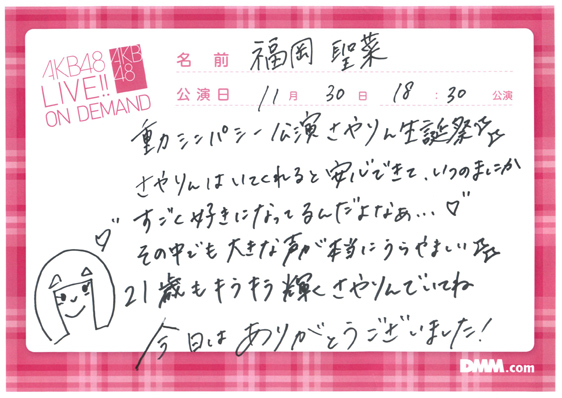 AKB48
LIVE!!
ON DEMAND
AKB
48
名前 福岡 聖菜
公演日 11月30日 18:30 公演
重力シンパシー公演さやりん生誕祭☆☆
さやりんはいてくれると安心できて、いつのまにか
すごく好きになってるんだよなぁ...♡
その中でも大きな声が本当にうらやましい☆☆
21歳もキラキラ輝くさやりんでいてね
今日はありがとうございました!
DMM.com